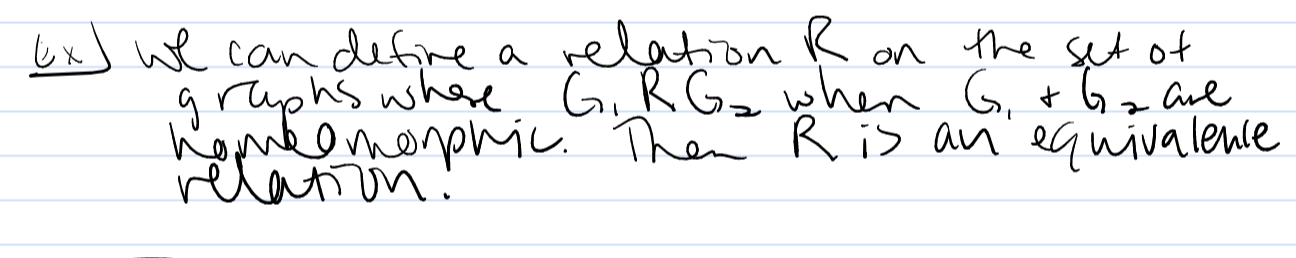 Ex) We can define a relation R on the set of
graphs where G₁RG₂ when G₁ + G₂ are
homeomorphic. Then R is an equivalence
relation.